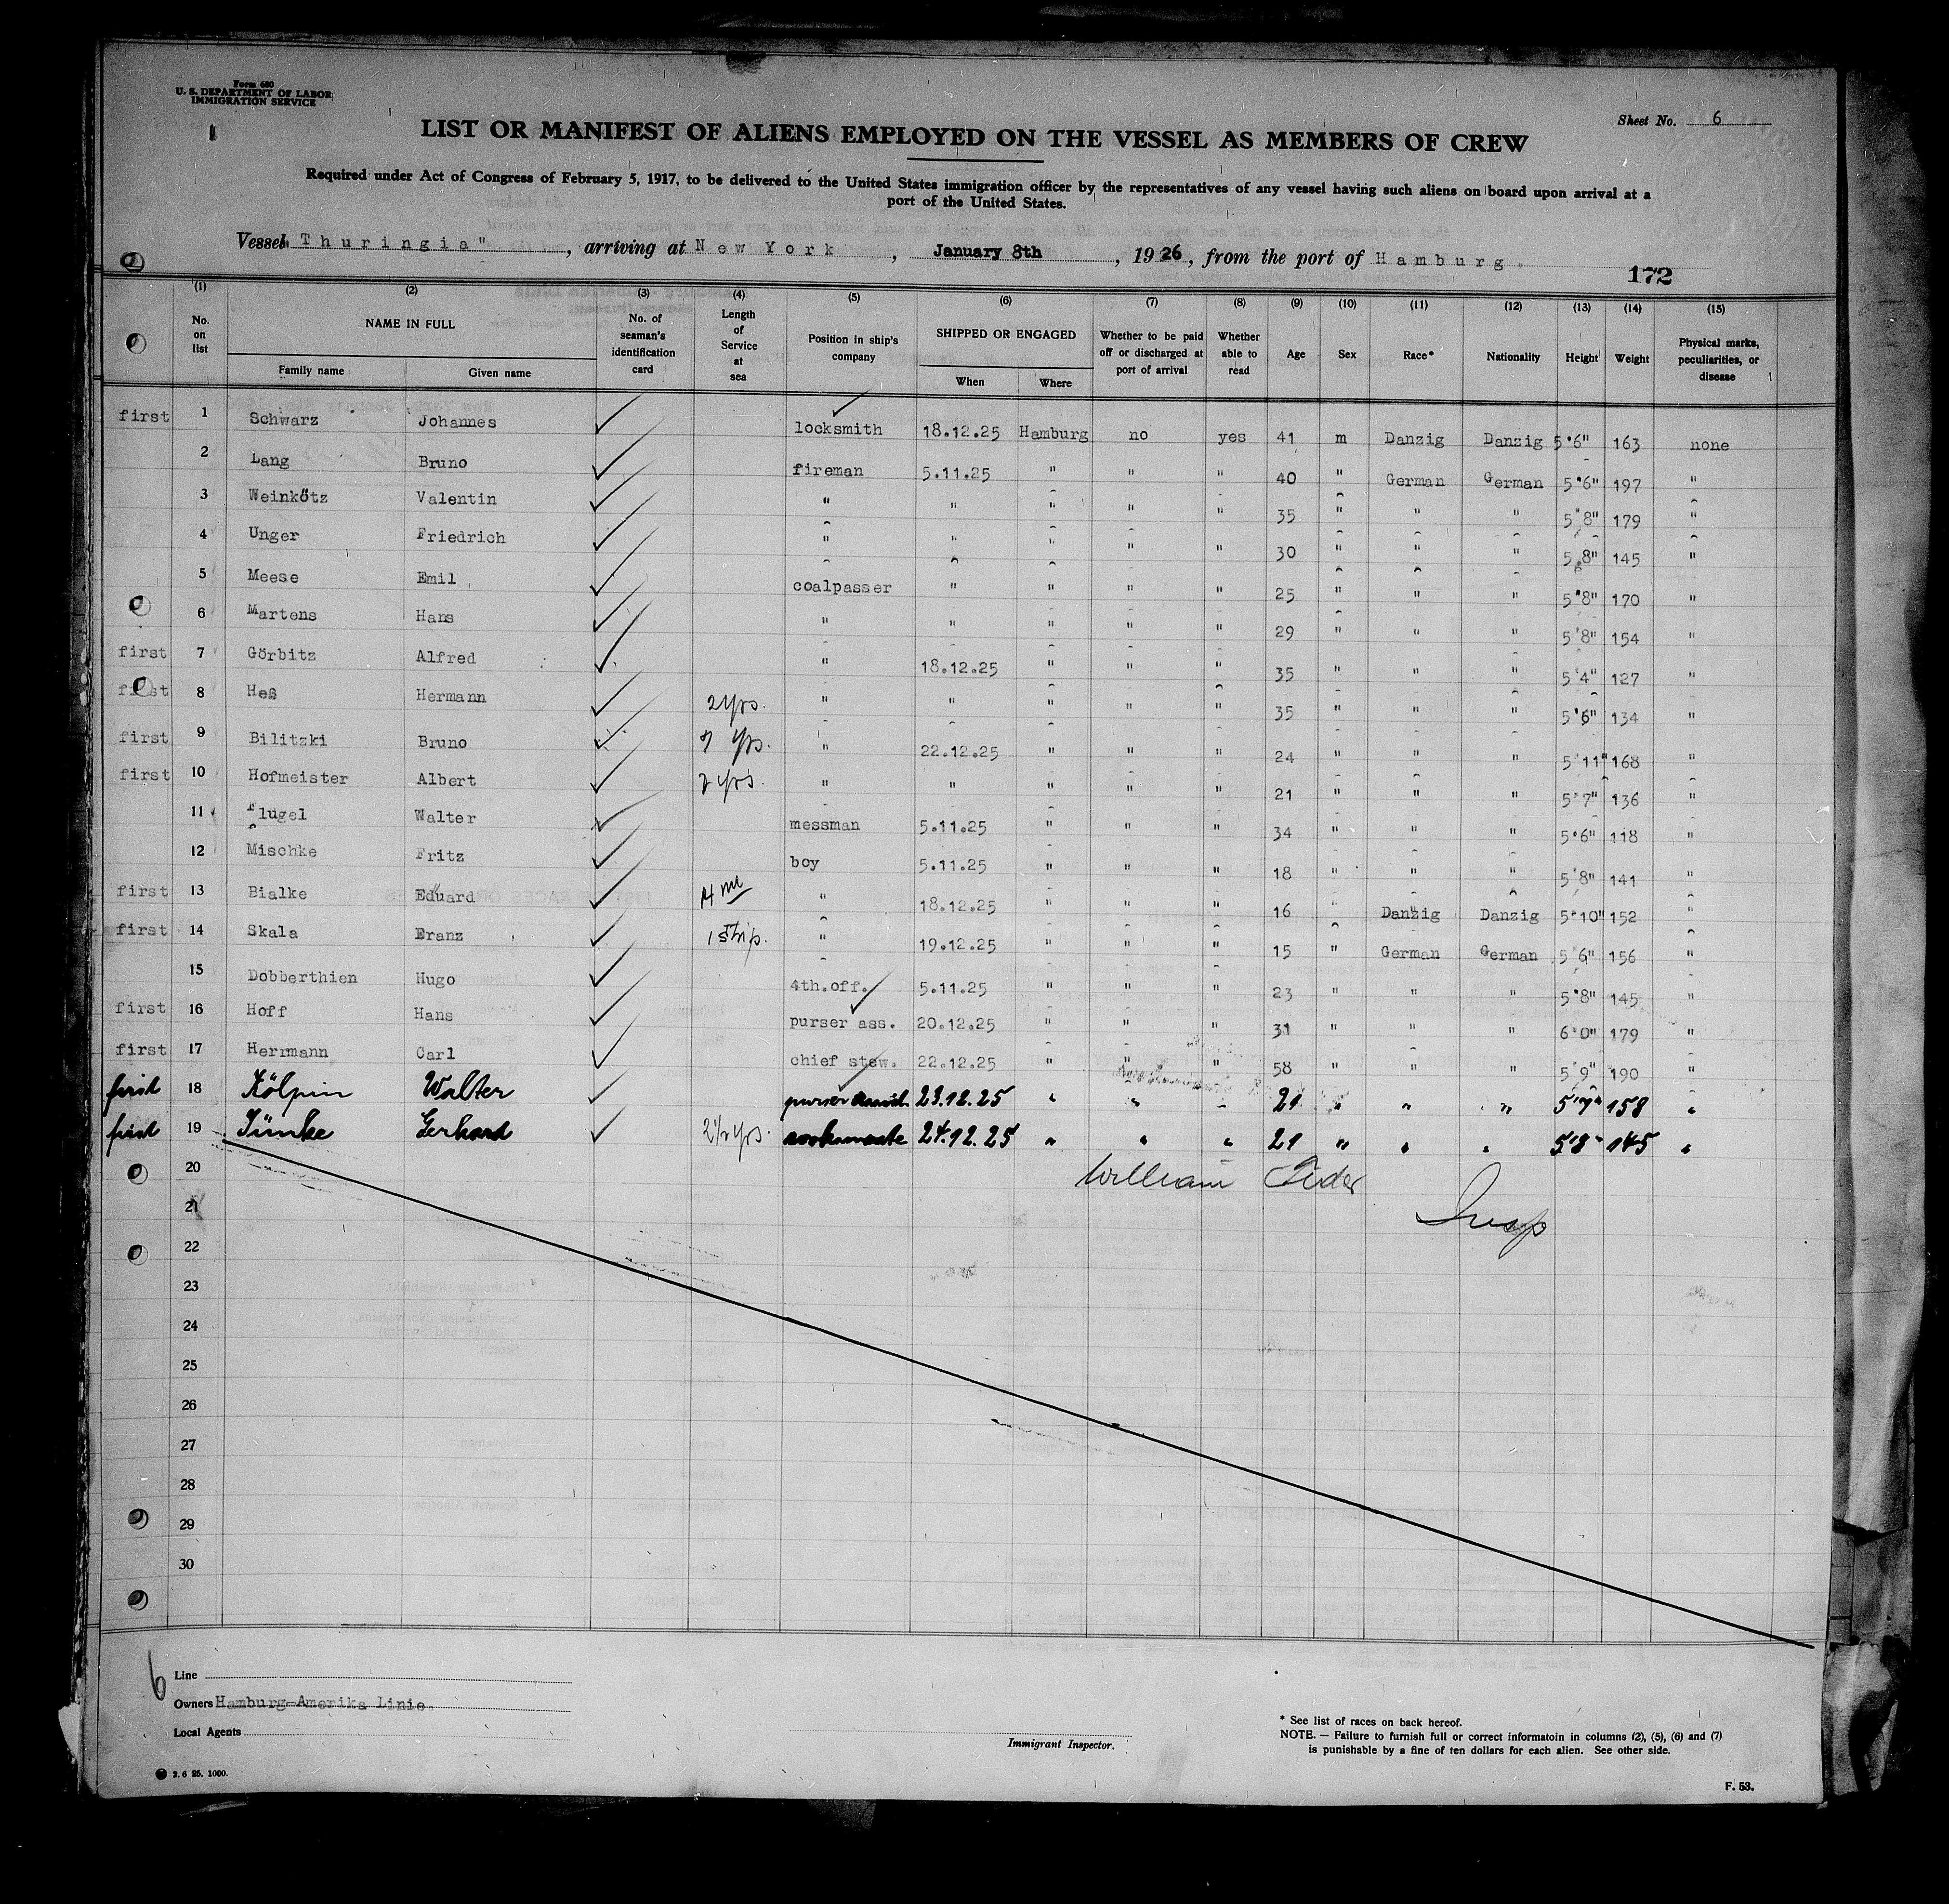 Form 680
U. S. DEPARTMENT OF LABOR
IMMIGRATION SERVICE
Sheet No. 6
LIST OR MANIFEST OF ALIENS EMPLOYED ON THE VESSEL AS MEMBERS OF CREW
Required under Act of Congress of February 5, 1917, to be delivered to the United States immigration officer by the representatives of any vessel having such aliens on board upon arrival at a
port of the United States.
Vessel "Thuringia", arriving at New York, January 8th, 1926, from the port of Hamburg.
172
(1) (2) (3) (4) (5) (6) (7) (8) (9) (10) (11) (12) (13) (14) (15)
No. on list NAME IN FULL Family name Given name No. of seaman's identification card Length of Service at sea Position in ship's company SHIPPED OR ENGAGED When Where Whether to be paid off or discharged at port of arrival Whether able to read Age Sex Race* Nationality Height Weight Physical marks, peculiarities, or disease
first 1 Schwarz Johannes locksmith 18.12.25 Hamburg no yes 41 m Danzig Danzig 5'6" 163 none
2 Lang Bruno fireman 5.11.25 " " " 40 " German German 5'6" 197 "
3 Weinkötz Valentin " " " " " 35 " " " 5'8" 179 "
4 Unger Friedrich " " " " " 30 " " " 5'8" 145 "
5 Meese Emil coalpasser " " " " 25 " " " 5'8" 170 "
6 Martens Hans " " " " " 29 " " " 5'8" 154 "
first 7 Görbitz Alfred " 18.12.25 " " " 35 " " " 5'4" 127 "
first 8 Heß Hermann 2 yrs. " " " " " 35 " " " 5'6" 134 "
first 9 Bilitzki Bruno yrs. " 22.12.25 " " " 24 " " " 5'11" 168 "
first 10 Hofmeister Albert 2 yrs. " " " " " 21 " " " 5'7" 136 "
11 Flugel Walter messman 5.11.25 " " " 34 " " " 5'6" 118 "
12 Mischke Fritz boy 5.11.25 " " " 18 " " " 5'8" 141 "
first 13 Bialke Eduard " 18.12.25 " " " 16 " Danzig Danzig 5'10" 152 "
first 14 Skala Franz 1 ship. " 19.12.25 " " " 15 " German German 5'6" 156 "
15 Dobberthien Hugo 4th.off. 5.11.25 " " " 23 " " " 5'8" 145 "
first 16 Hoff Hans purser ass. 20.12.25 " " " 31 " " " 6'0" 179 "
first 17 Herrmann Carl chief stew. 22.12.25 " " " 58 " " " 5'9" 190 "
first 18 Kölpin Walter purser 23.12.25 " " " 21 " " " 5'7" 158 "
first 19 Jünke Gerhard 2½ yrs. cooksmate 24.12.25 " " " 21 " " " 5'8" 145 "
20 William
21 Insp
22
23
24
25
26
27
28
29
30
6
Line
Owners Hamburg-Amerika Linie.
Local Agents
Immigrant Inspector.
* See list of races on back hereof.
NOTE. — Failure to furnish full or correct informatoin in columns (2), (5), (6) and (7)
is punishable by a fine of ten dollars for each alien. See other side.
2. 6 25. 1000.
F. 53.